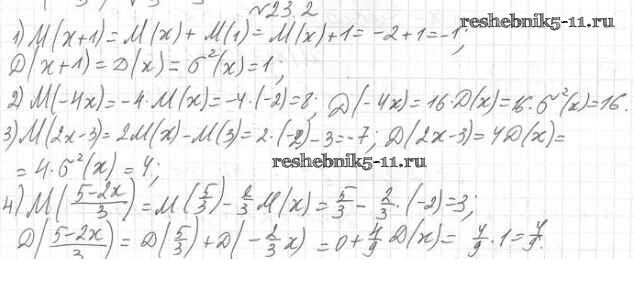 №23.2
reshebnik5-11.ru
1) M(x+1)=M(x)+M(1)=M(x)+1=-2+1=-1;
D(x+1)=D(x)=σ²(x)=1;
2) M(-4x)=-4·M(x)=-4·(-2)=8; D(-4x)=16·D(x)=16·σ²(x)=16.
3) M(2x-3)=2M(x)-M(3)=2·(-2)-3=-7; D(2x-3)=4D(x)=
=4·σ²(x)=4;
reshebnik5-11.ru
4) M((5-2x)/3)=M(5/3)-2/3 M(x)=5/3-2/3·(-2)=3;
D((5-2x)/3)=D(5/3)+D(-2/3 x)=0+4/9 D(x)=4/9·1=4/9.